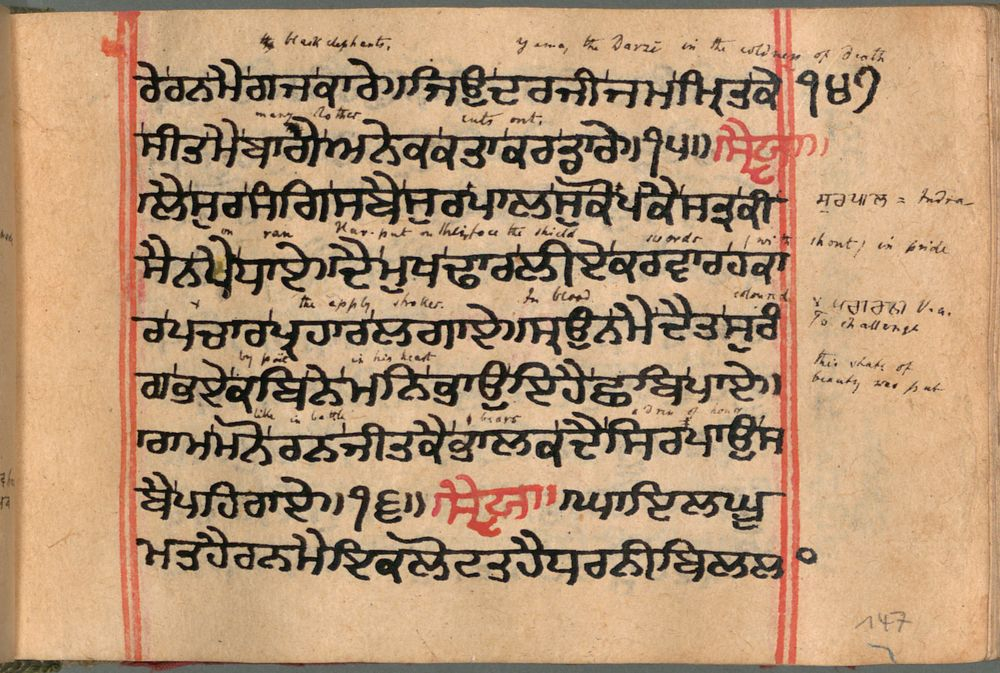 the black elephants. yama, the Darzi in the coldness of Death
ਰੇਰਨਮੈਗਜਕਾਰੇ॥ਜਿਉਦਰਜੀਜਮਮ੍ਰਿਤਕੇ ੧੪੭
many clothes cuts out.
ਸੀਤਮੈਬਾਗੇਅਨੇਕਕਤਾਕਰਡਾਰੇ॥੧੫॥ਸ੍ਵੈਯਾ॥
ਲੈਸੁਰਸੰਗਿਸਬੈਸੁਰਪਾਲਸੁਕੋਪਕੈਸਤ੍ਰਕੀ
ਸੁਰਪਾਲ = Indra
on ran Har. put on the face the shield swords with
shout, in pride
ਸੈਨਪੈਧਾਏ॥ਦੈਮੁਖਢਾਰਲੀਏਕਰਵਾਰਹਕਾ
the apply strokes. In blood coloured
ਰਪਚਾਰਪ੍ਰਹਾਰਲਗਾਏ॥ਸ੍ਰਉਨਮੈਦੈਤਸੁਰੰ
V.a.
To challenge
by poet in his heart
this state of
beauty was put
ਗਭਏਕਬਿਨੇਮਨਿਭਾਉਇਹੈਛਬਿਪਾਏ॥
like in battle bears a dress of honour
ਰਾਮਮਨੋਰਨਜੀਤਕੈਭਾਲਕਦੈਸਿਰਪਾਉਸ
ਬੈਪਹਿਰਾਏ॥੧੬॥ਸ੍ਵੈਯਾ॥ਘਾਇਲਘੂ
ਮਤਹੈਰਨਮੈਇਕਲੋਟਤਹੈਧਰਨੀਬਿਲਲ
147